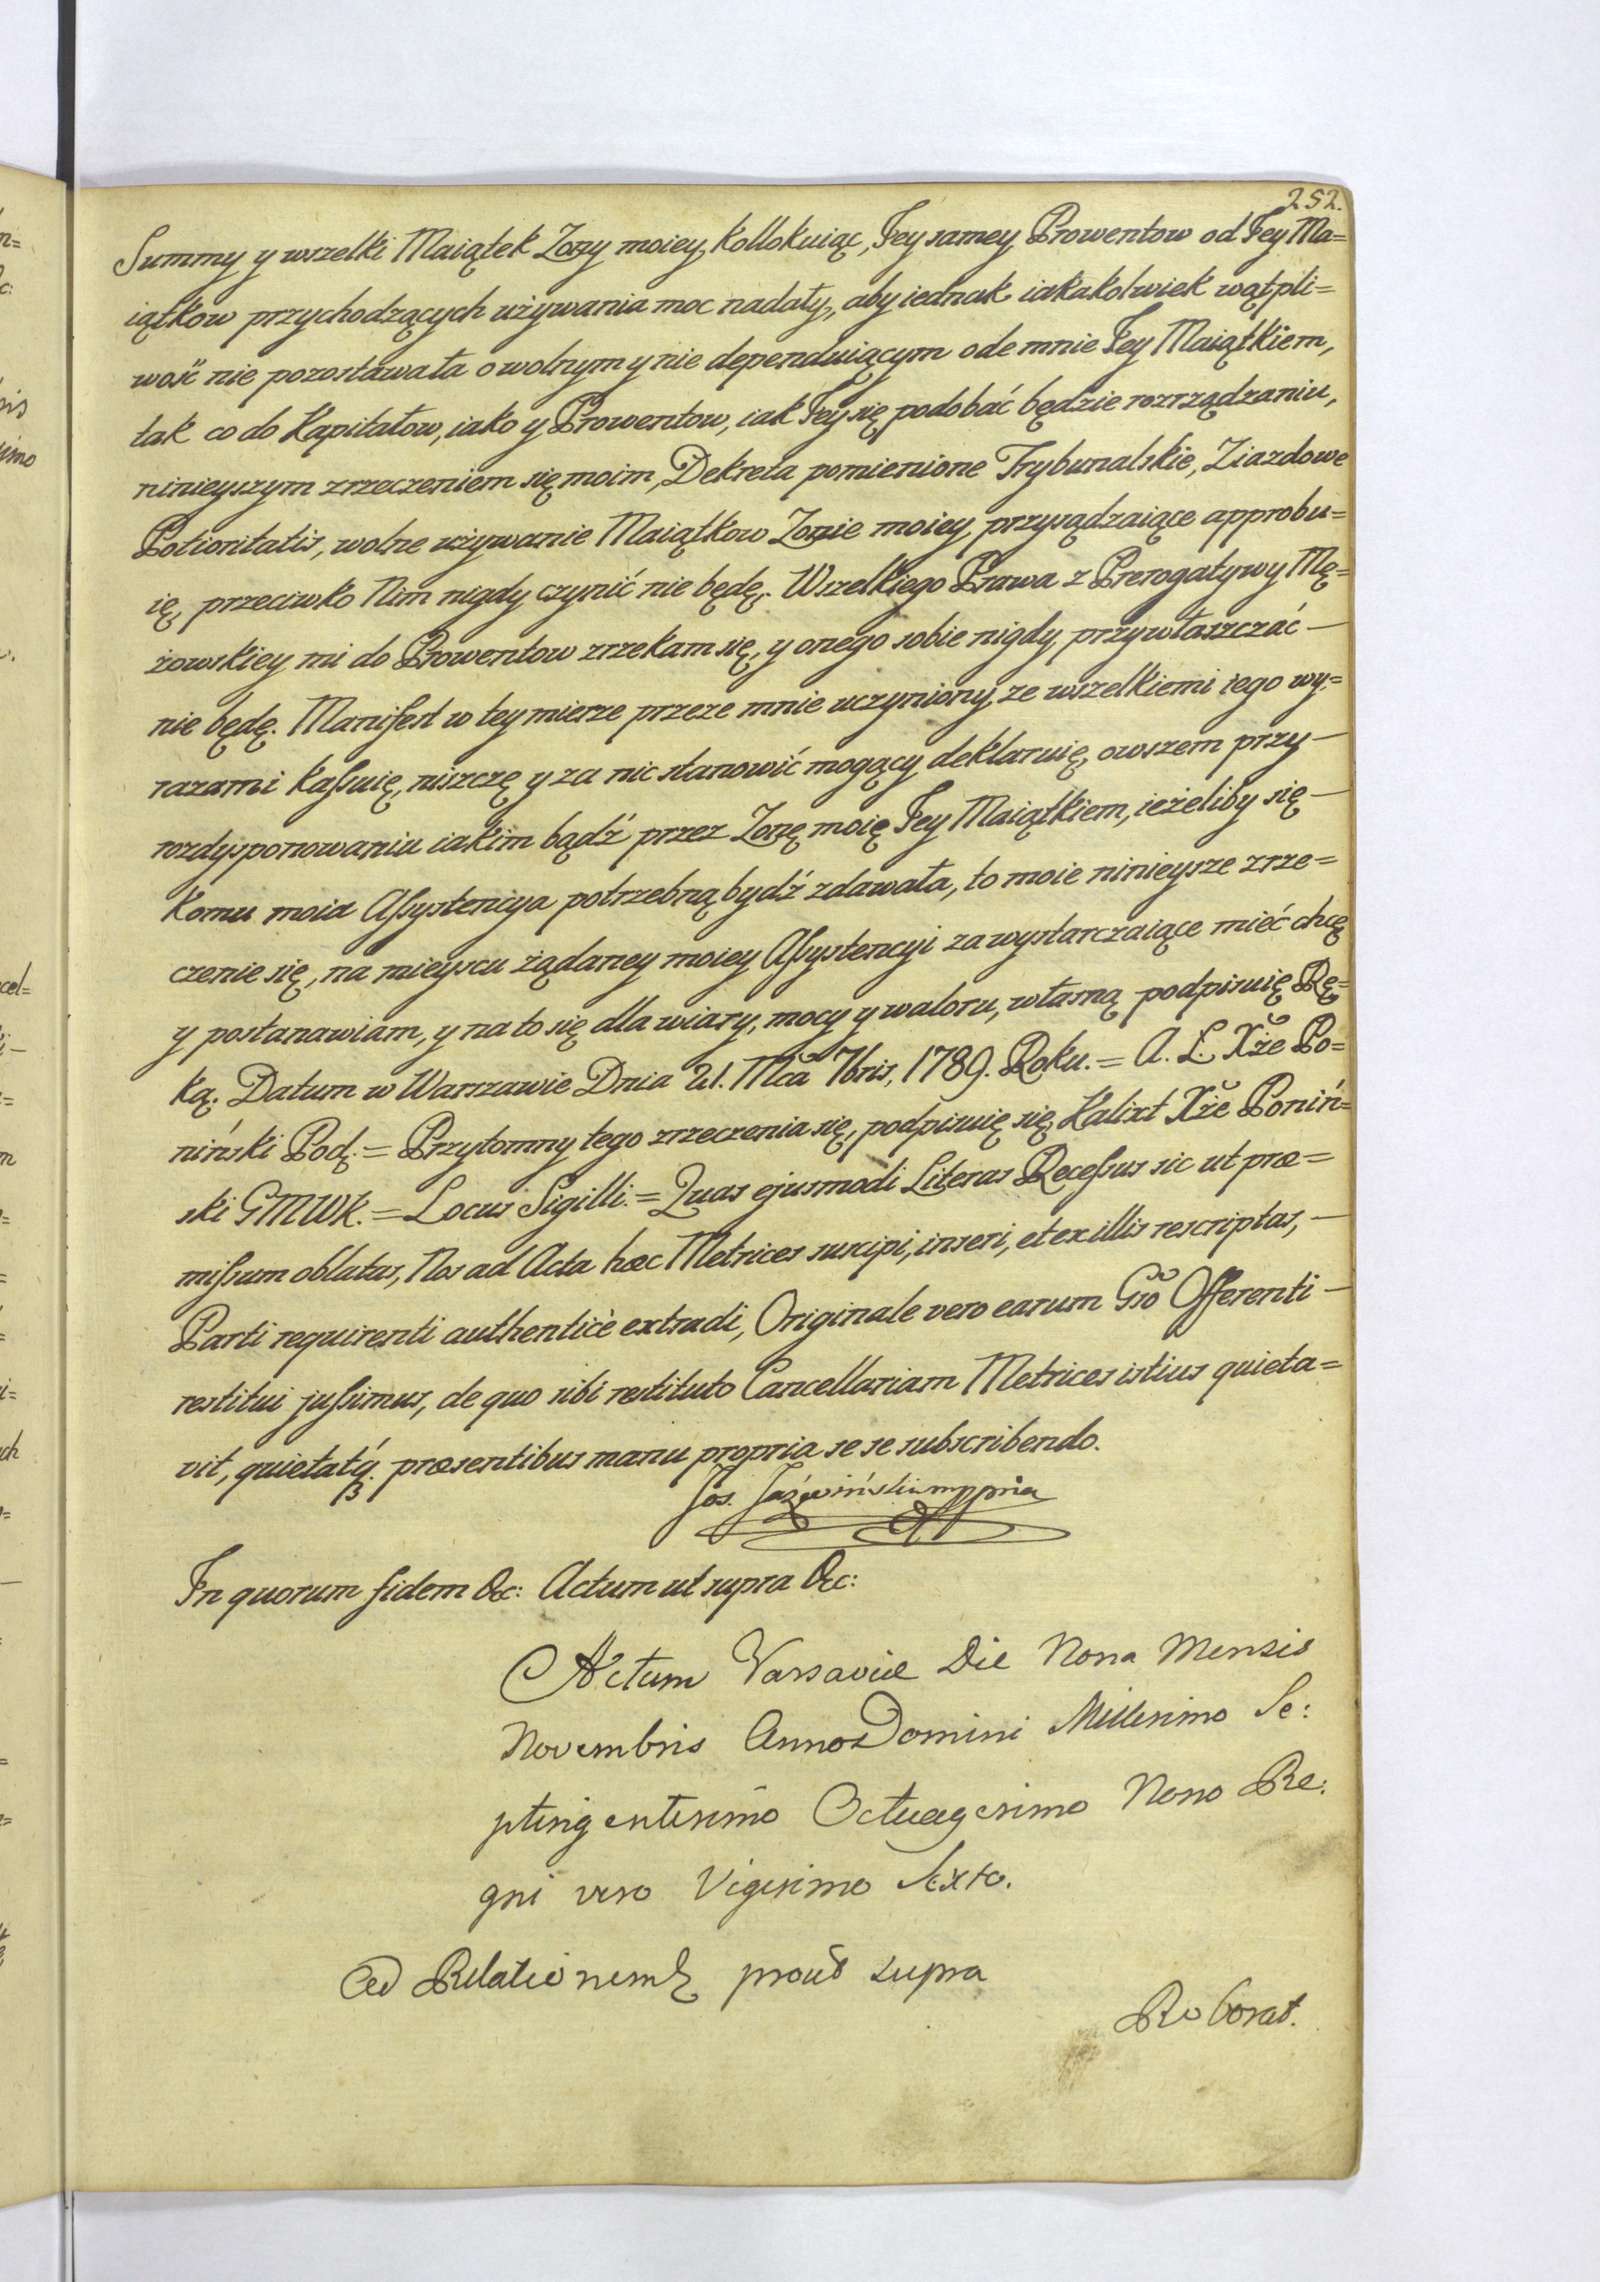 252.
Summy y wszelki Maiątek Zony moiey, kollokuiąc, Jey samey Prowentow od Jey Ma=
iątkow przychodzących używania moc nadały, aby iednak iakakolwiek wątpli=
wość nie pozostawała o wolnym y nie dependuiącym odemnie Jey Maiątkiem,
tak co do Kapitałow, iako y Prowentow, iak Jey się podobać będzie rozrządzaniu,
ninieyszym zrzeczeniem się moim, Dekreta pomienione Trybunalskie, Ziazdowe
Potioritatis, wolne używanie Maiątkow Zonie moiey, przysądzaiące approbu=
ię, przeciwko Nim nigdy czynić nie będę. Wszelkiego Prawa z Prerogatywy Mę=
żowskiey mi do Prowentow zrzekam się, y onego sobie nigdy przywłaszczać —
nie będę. Manifest w tey mierze przeze mnie uczyniony, ze wszelkiemi iego wy=
razami kaſsuię, niszczę y za nic stanowić mogący deklaruię, owszem przy —
rozdysponowaniu iakim bądź przez Zonę moię Jey Maiątkiem, ieżeliby się —
komu moia Aſsystencya potrzebną bydź zdawała, to moie ninieysze zrze=
czenie się, na mieyscu żądaney moiey Aſsystencyi za wystarczaiące mieć chcę
y postanawiam, y na to się dla wiary, mocy y waloru, własną podpisuię Rę=
ką. Datum w Warszawie Dnia 21. Mca 7bris, 1789. Roku. = A. L. Xże Po=
niński Pod. = Przytomny tego zrzeczenia się, podpisuię się Kalixt Xże Poniń=
ski GMWK. = Locus Sigilli. = Quas ejusmodi Literas Receſsus sic ut præ=
miſsum oblatas, Nos ad Acta hæc Metrices suscipi, inseri, et ex illis rescriptas, —
Parti requirenti authenticè extradi, Originale vero earum Gro Offerenti —
restitui juſsimus, de quo sibi restituto Cancellariam Metrices istius quieta=
vit, quietatq. præsentibus manu propria se se subscribendo.
Jos. Jaźwiński mppria
In quorum fidem &c: Actum ut supra &c:
Actum Varsaviæ Die Nona Mensis
Novembris Anno Domini Millesimo Se:
ptingentesimo Octuagesimo Nono Re:
gni vero Vigesimo Sexto.
Ad Relationem prout supra
Roborat.